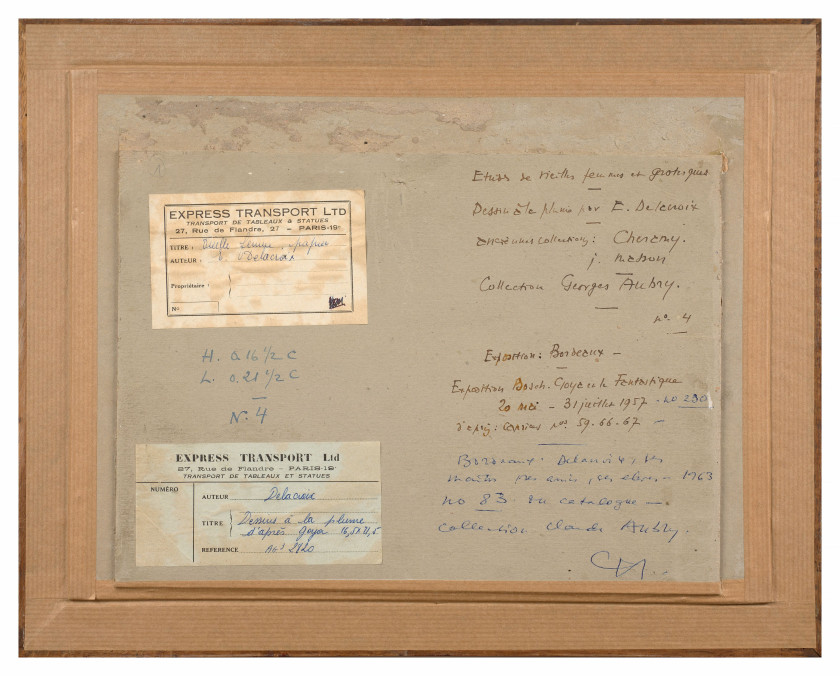 EXPRESS TRANSPORT LTD
TRANSPORT DE TABLEAUX & STATUES
27, Rue de Flandre, 27 - PARIS-19e
TITRE : Vieille femme,
AUTEUR : Delacroix
Propriétaire :
No
H. 0.16 1/2 C
L. 0.21 1/2 C
N. 4
EXPRESS TRANSPORT Ltd
27, Rue de Flandre - PARIS-19e
TRANSPORT DE TABLEAUX ET STATUES
NUMÉRO
AUTEUR Delacroix
TITRE Dessins à la plume
d'après Goya 16,5
REFERENCE 2420
Etudes de vieilles femmes et grotesques
Dessin à la plume par E. Delacroix
anciennes collections: Cheramy.
j. Masson
Collection Georges Aubry.
no. 4
Exposition: Bordeaux -
Exposition Bosch. Goya et le Fantastique
20 mai - 31 juillet 1957 - no 230
d'après: Caprices nos. 59.66.67 -
Bordeaux. Delacroix, ses
maîtres ses amis, ses élèves - 1963
no 83 du catalogue -
collection Claude Aubry.